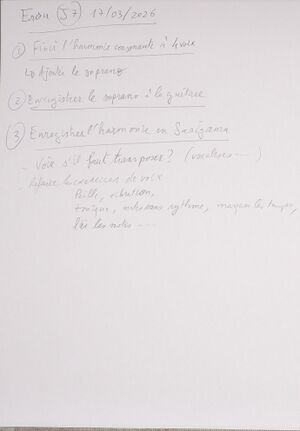 (57) 17/03/2026
① Finir l'harmonie consonante à 4 voix
↳ Ajouter le soprano
② Enregistrer le soprano à la guitare
③ Enregistrer l'harmonie en Sargama
- Voir s'il faut transposer ? (vocalises ----)
- Refaire les exercices de voix
Paille, vibration,
tonique, notes sans rythme, marquer les temps,
lire les notes ----